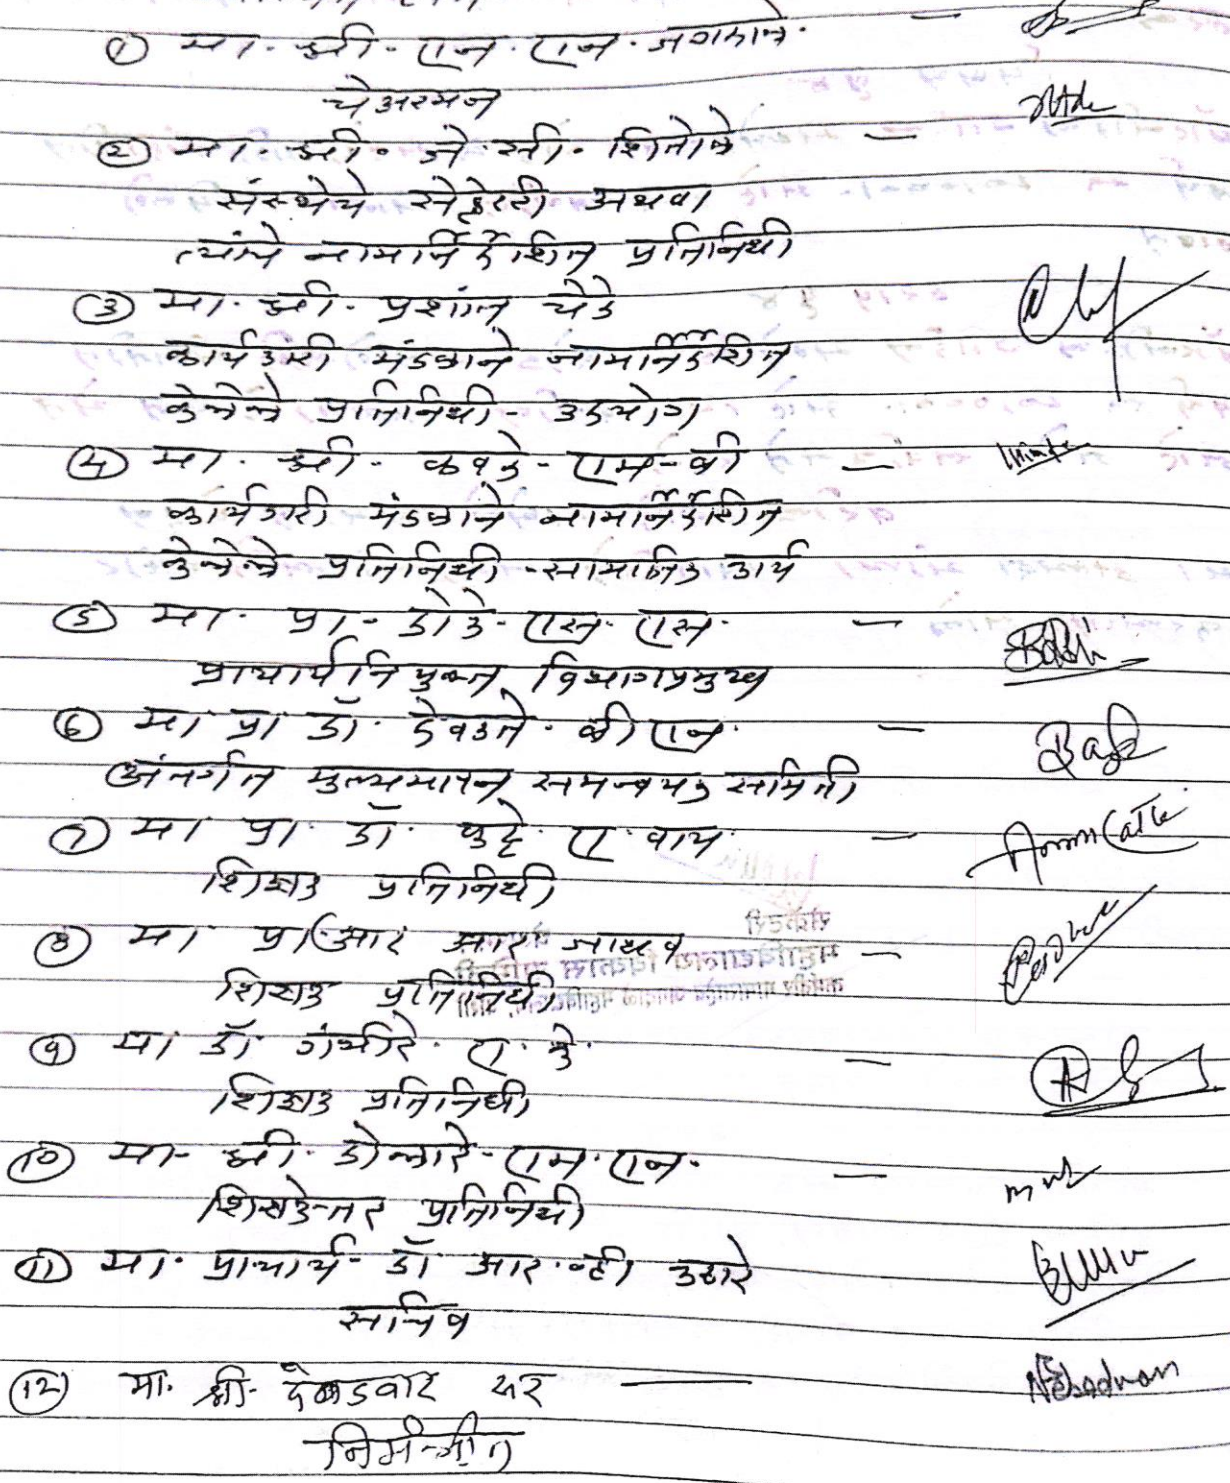 ① मा. श्री. एन. एन. जगताप. —
चेअरमन
② मा. श्री. जे. सी. शितोळे —
संस्थेचे सेक्रेटरी अथवा
त्यांचे नामनिर्देशित प्रतिनिधी
③ मा. श्री. प्रशांत येडे
कार्यकारी मंडळाने नामनिर्देशित
केलेले प्रतिनिधी - उद्योग
④ मा. श्री. कवडे - एम - बी —
कार्यकारी मंडळाने नामनिर्देशित
केलेले प्रतिनिधी - सामाजिक कार्य
⑤ मा. प्रा - डोके - एस. एस. —
प्राचार्य नियुक्त विभागप्रमुख
⑥ मा. प्रा डॉ. देवकते. बी एन. —
अंतर्गत मुल्यमापन समन्वयक समिती
⑦ मा प्रा. डॉ. ए. वाय. —
शिक्षक प्रतिनिधी
⑧ मा प्रा आर आर जाधव —
शिक्षक प्रतिनिधी
⑨ मा डॉ. गंभीरे. ए. के. —
शिक्षक प्रतिनिधी
⑩ मा - श्री. डोलारे - एम. एन. —
शिक्षकेत्तर प्रतिनिधी
⑪ मा. प्राचार्य - डॉ आर. व्ही —
सचिव
⑫ मा. श्री - देवडवार सर —
निमंत्रीत